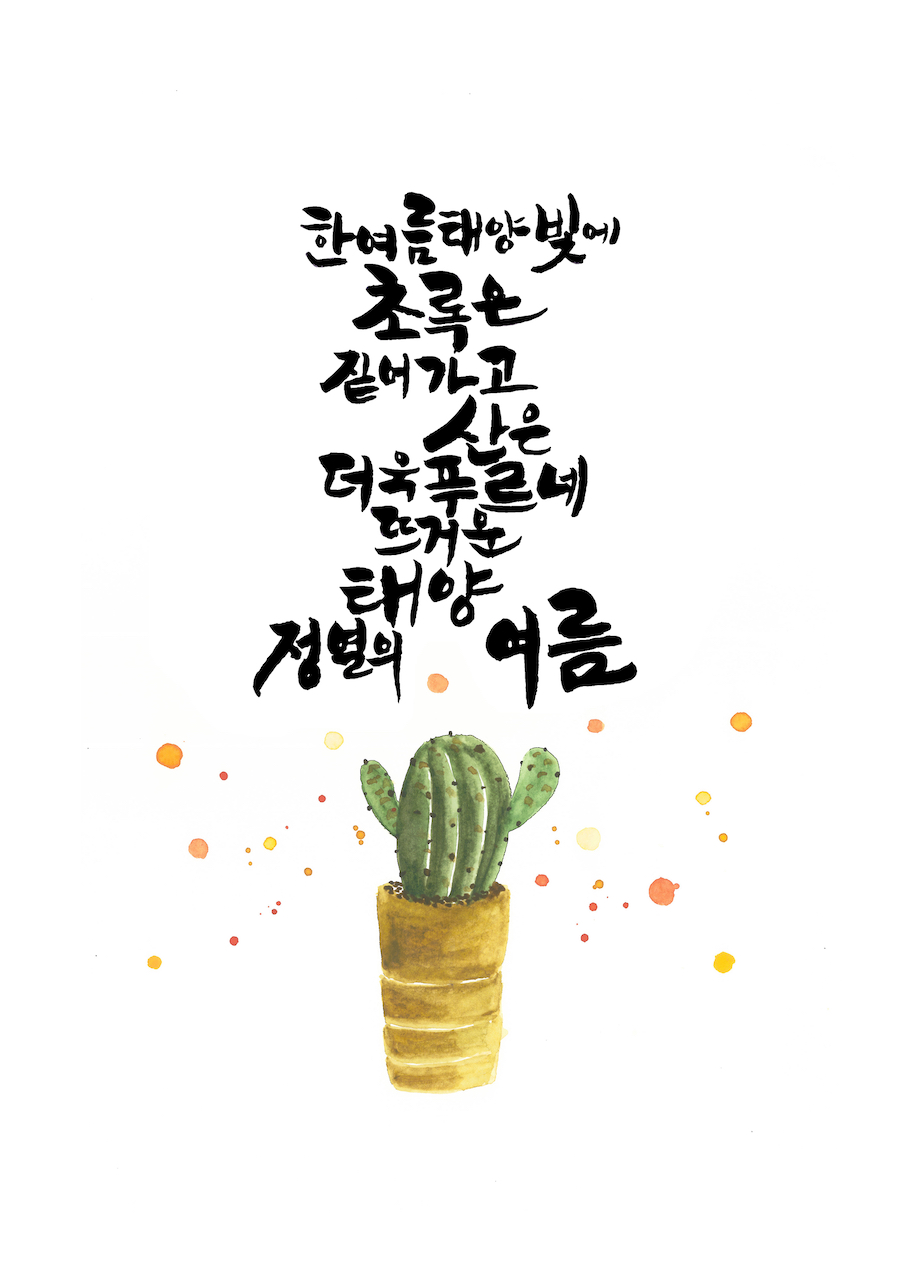 한여름태양빛에
초록은
짙어가고
산은
더욱푸르네
뜨거운
태양
정열의 여름